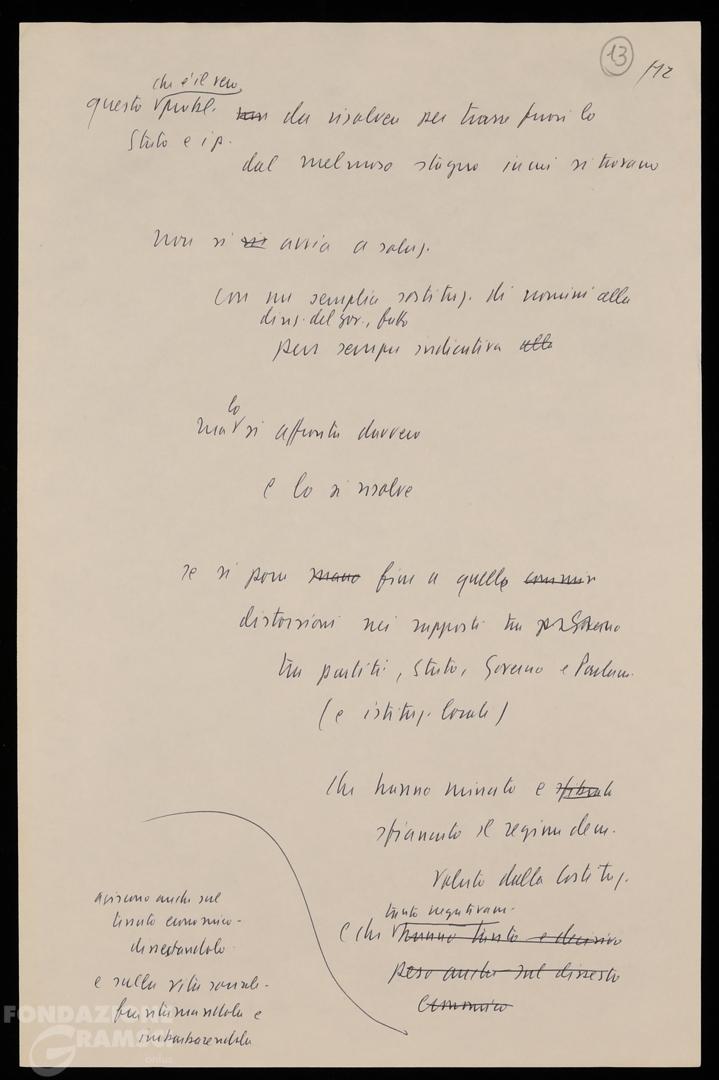 13
/12
che è il vero
questo probl. non da risolvere per trarre fuori lo
Stato e i p.
dal melmoso stagno in cui si trovano
non si avvia a soluz.
con una semplice sostituz. di uomini alla
direz. del gov., fatto
pur sempre indicativo alla
lo
ma si affronta davvero
e lo si risolve
se si pone mano fine a quelle
distorsioni nei rapporti tra Governo
tra partiti, Stato, Governo e Parlam.
(e istituz. locali)
che hanno minato e
sfiancato il regime dem.
voluto dalla Costituz.
tanto negativam.
e che hanno tanto e decisivo
peso anche sul dissesto
economico
agiscono anche sul
tessuto economico -
dissestandolo
e sulla vita sociale -
frantumandola e
imbarbarendola
FONDAZIONE
GRAMSCI
onlus